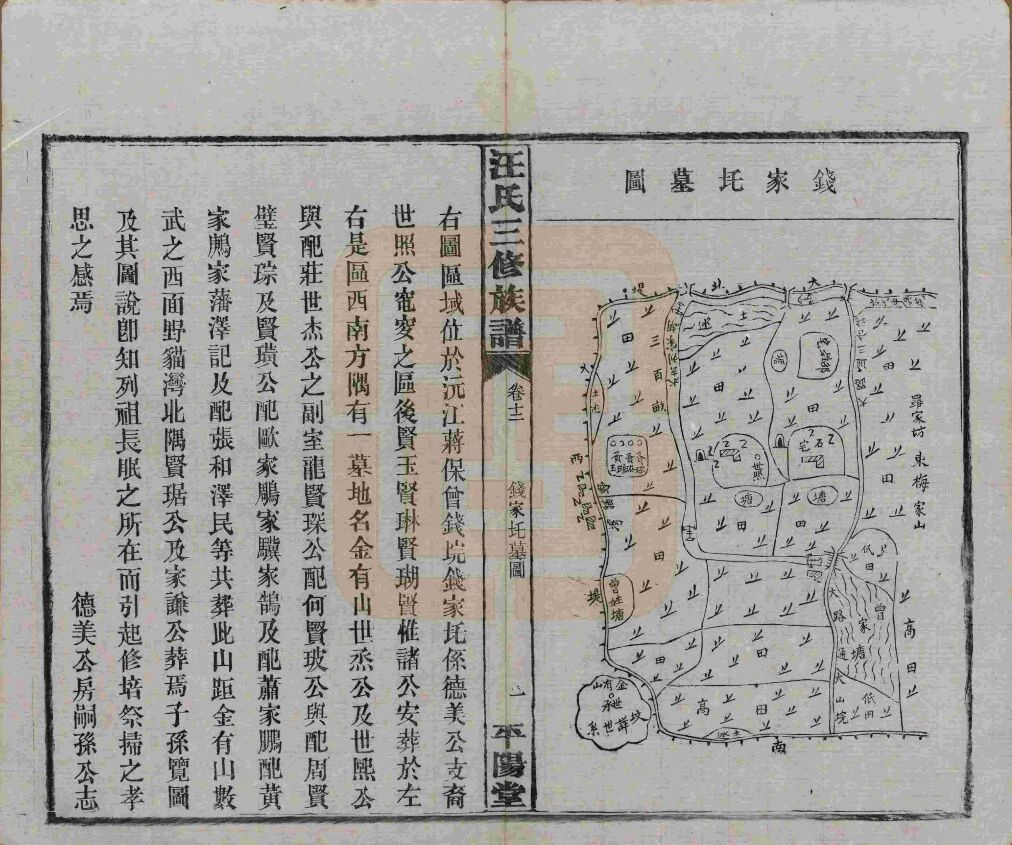 錢家圫墓圖
羅家坊東梅家山
大路通三官
三百畝
田
塘
宅
大路通大山垸
曾家塘
低田
高田
曾姓塘
大北堤
西
南
汪氏三修族譜
卷十二
錢家圫墓圖
平陽堂
右圖區域位於沅江蔣保曾錢垸錢家圫係德美公支裔
世照公窀穸之區後賢玉賢琳賢瑚賢惟諸公安葬於左
右是區西南方隅有一墓地名金有山世烝公及世熙公
與配莊世杰公之副室龍賢琛公配何賢玻公與配周賢
璧賢琮及賢璜公配歐家鵰家驥家鵠及配蕭家鵬配黃
家鷹家藩澤記及配張和澤民等共葬此山距金有山數
武之西面野貓灣北隅賢琚公及家謙公葬焉子孫覽圖
及其圖說卽知列祖長眠之所在而引起修培祭掃之孝
思之感焉
德美公房嗣孫公志